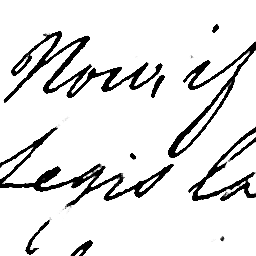 Now, if
Legis la